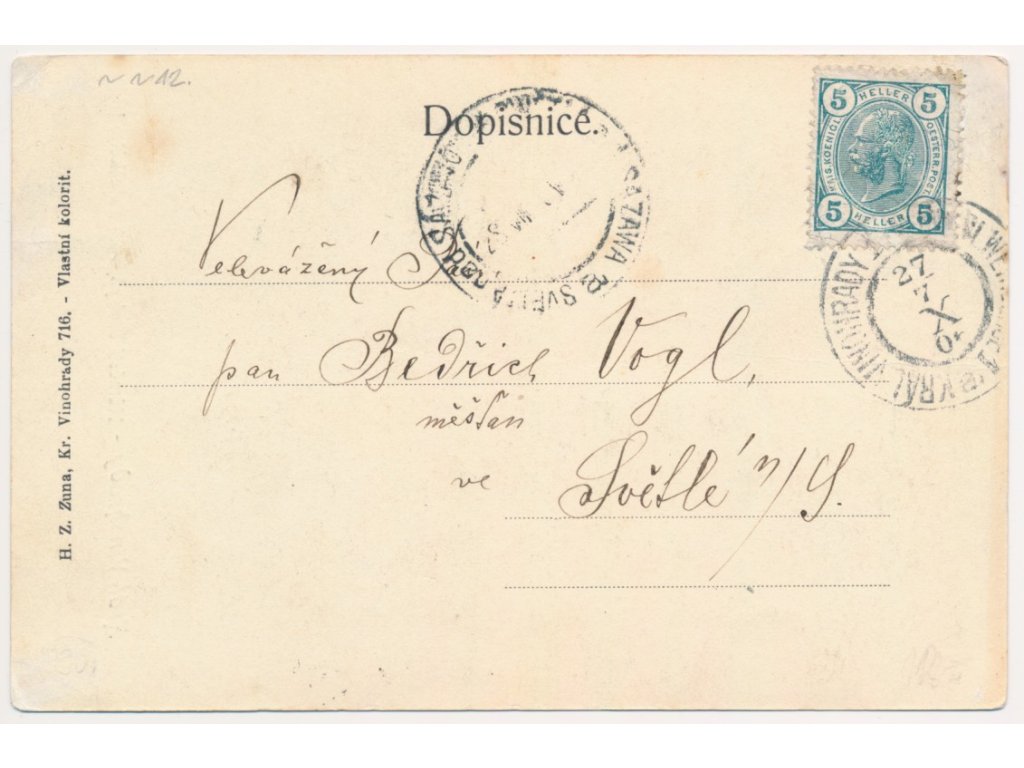 ~ ~ 12.
Dopisnice.
5 HELLER 5
KAIS. KOENIGL.
OESTERR. POST.
5 HELLER 5
SAZAWA
SVĚTLÁ
KRÁL. VINOHRADY 1
27
Velevážený
pan Bedřich Vogl,
měšťan
ve Světlé n/S.
H. Z. Zuna, Kr. Vinohrady 716. - Vlastní kolorit.